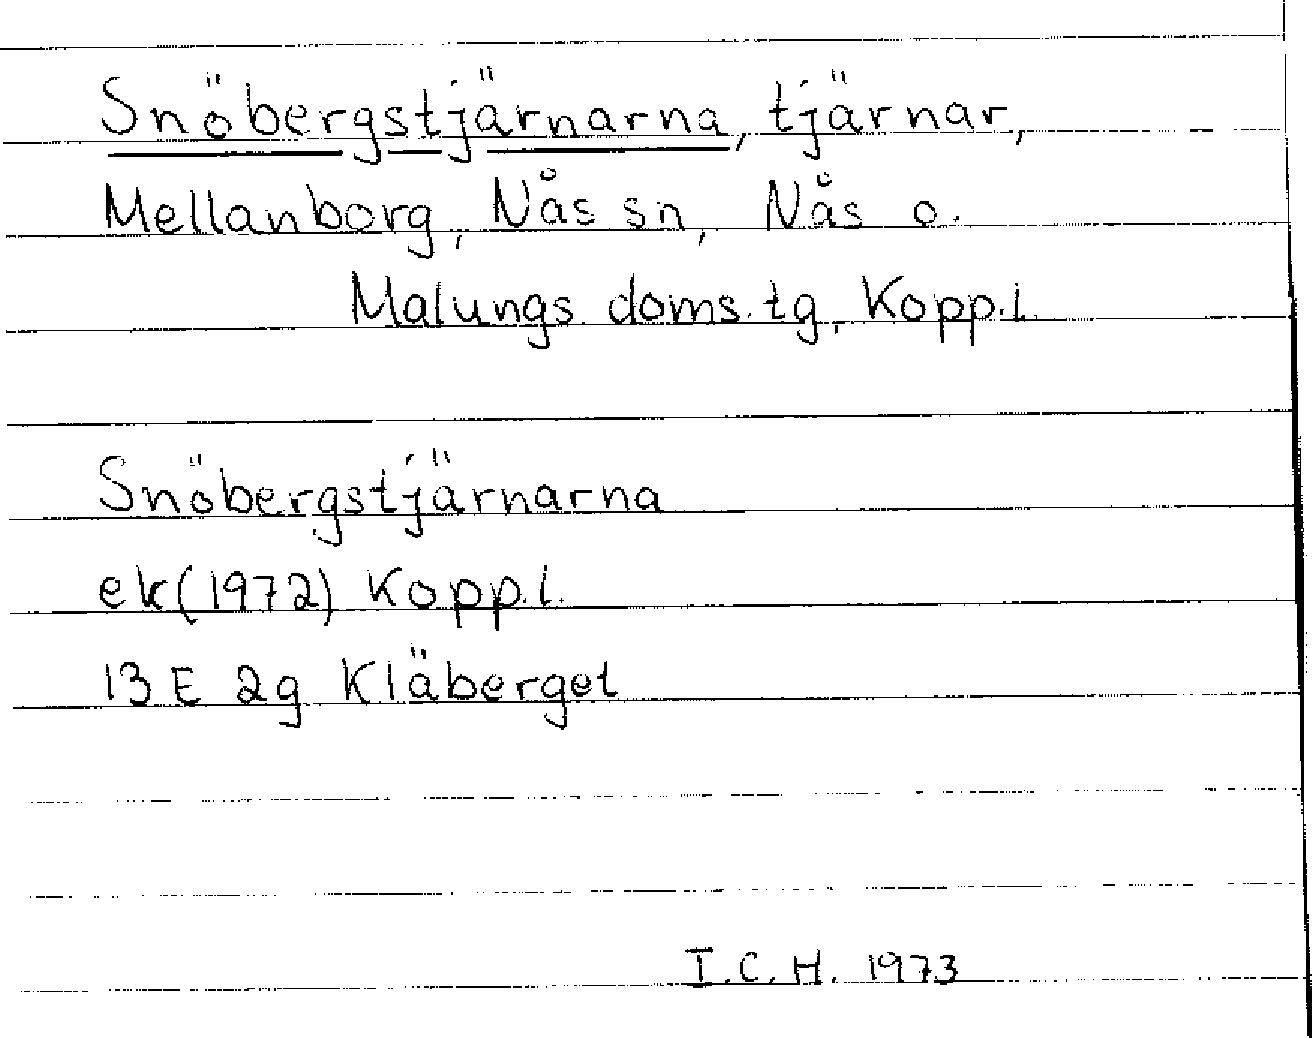 Snöbergstjärnarna, tjärnar,
Mellanborg, Nås sn, Nås o.
Malungs doms.tg, Kopp.l.
Snöbergstjärnarna
ek(1972) Kopp.l.
13 E 2g Kläberget
I.C.H. 1973